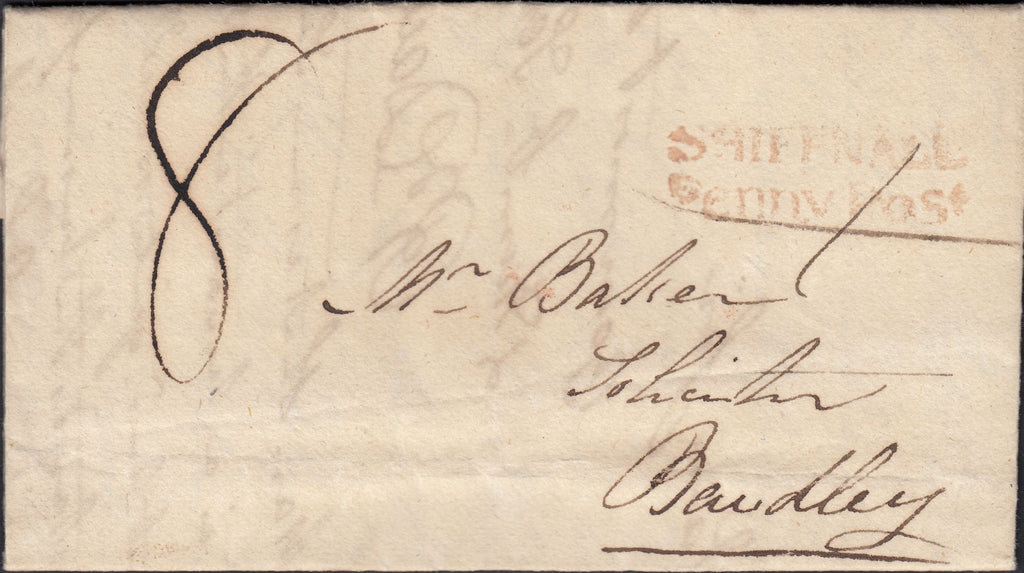 8
SHIFFNALL
Penny Post
Mr Baker
Solicitor
Bewdley